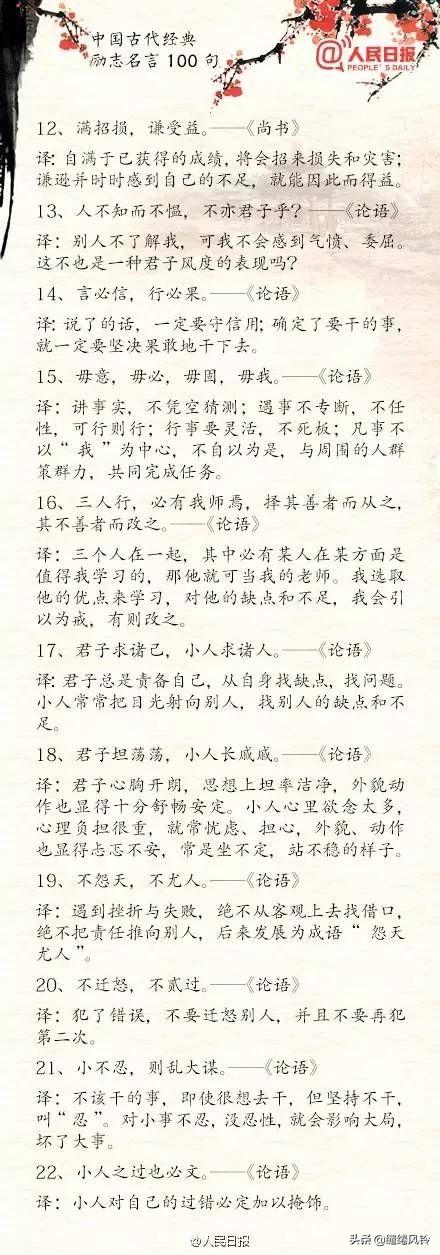 中国古代经典
励志名言100句
@人民日报
PEOPLE'S DAILY
12、满招损，谦受益。——《尚书》
译：自满于已获得的成绩，将会招来损失和灾害；
谦逊并时时感到自己的不足，就能因此而得益。
13、人不知而不愠，不亦君子乎？——《论语》
译：别人不了解我，可我不会感到气愤、委屈。
这不也是一种君子风度的表现吗？
14、言必信，行必果。——《论语》
译：说了的话，一定要守信用；确定了要干的事，
就一定要坚决果敢地干下去。
15、毋意，毋必，毋固，毋我。——《论语》
译：讲事实，不凭空猜测；遇事不专断，不任
性，可行则行；行事要灵活，不死板；凡事不
以“我”为中心，不自以为是，与周围的人群
策群力，共同完成任务。
16、三人行，必有我师焉，择其善者而从之，
其不善者而改之。——《论语》
译：三个人在一起，其中必有某人在某方面是
值得我学习的，那他就可当我的老师。我选取
他的优点来学习，对他的缺点和不足，我会引
以为戒，有则改之。
17、君子求诸己，小人求诸人。——《论语》
译：君子总是责备自己，从自身找缺点，找问题。
小人常常把目光射向别人，找别人的缺点和不
足。
18、君子坦荡荡，小人长戚戚。——《论语》
译：君子心胸开朗，思想上坦率洁净，外貌动
作也显得十分舒畅安定。小人心里欲念太多，
心理负担很重，就常忧虑、担心，外貌、动作
也显得忐忑不安，常是坐不定，站不稳的样子。
19、不怨天，不尤人。——《论语》
译：遇到挫折与失败，绝不从客观上去找借口，
绝不把责任推向别人，后来发展为成语“怨天
尤人”。
20、不迁怒，不贰过。——《论语》
译：犯了错误，不要迁怒别人，并且不要再犯
第二次。
21、小不忍，则乱大谋。——《论语》
译：不该干的事，即使很想去干，但坚持不干，
叫“忍”。对小事不忍，没忍性，就会影响大局，
坏了大事。
22、小人之过也必文。——《论语》
译：小人对自己的过错必定加以掩饰。
@人民日报
头条@缠绕风铃